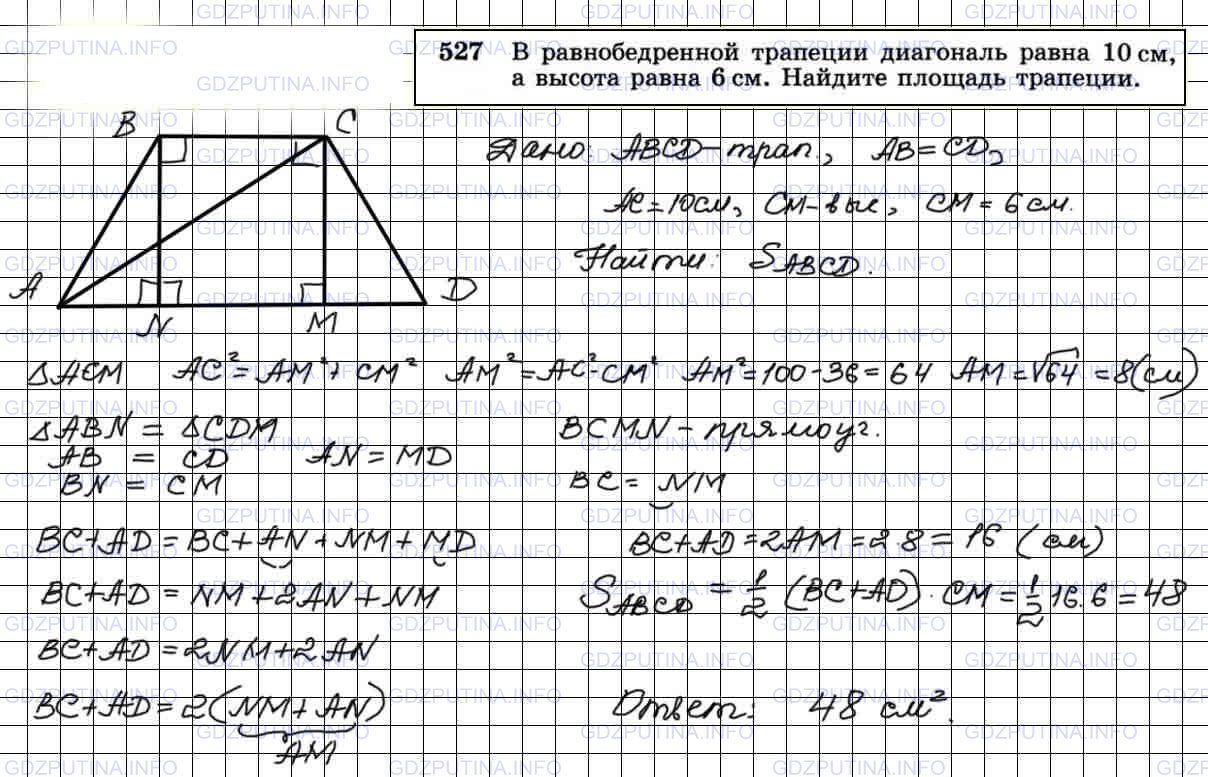 527 В равнобедренной трапеции диагональ равна 10 см,
а высота равна 6 см. Найдите площадь трапеции.
B C
A N M D
Дано: ABCD - трап., AB = CD,
AC = 10 см, CM - выс, CM = 6 см.
Найти: S_ABCD.
△ACM AC² = AM² + CM² AM² = AC² - CM² AM² = 100 - 36 = 64 AM = √64 = 8 (см)
△ABN = △CDM
AB = CD AN = MD
BN = CM
BCMN - прямоуг.
BC = NM
BC + AD = BC + AN + NM + MD
BC + AD = NM + 2AN + NM
BC + AD = 2NM + 2AN
BC + AD = 2(NM + AN)
AM
BC + AD = 2AM = 2·8 = 16 (см)
S_ABCD = 1/2 (BC + AD) · CM = 1/2 16·6 = 48
Ответ: 48 см².
GDZPUTINA.INFO